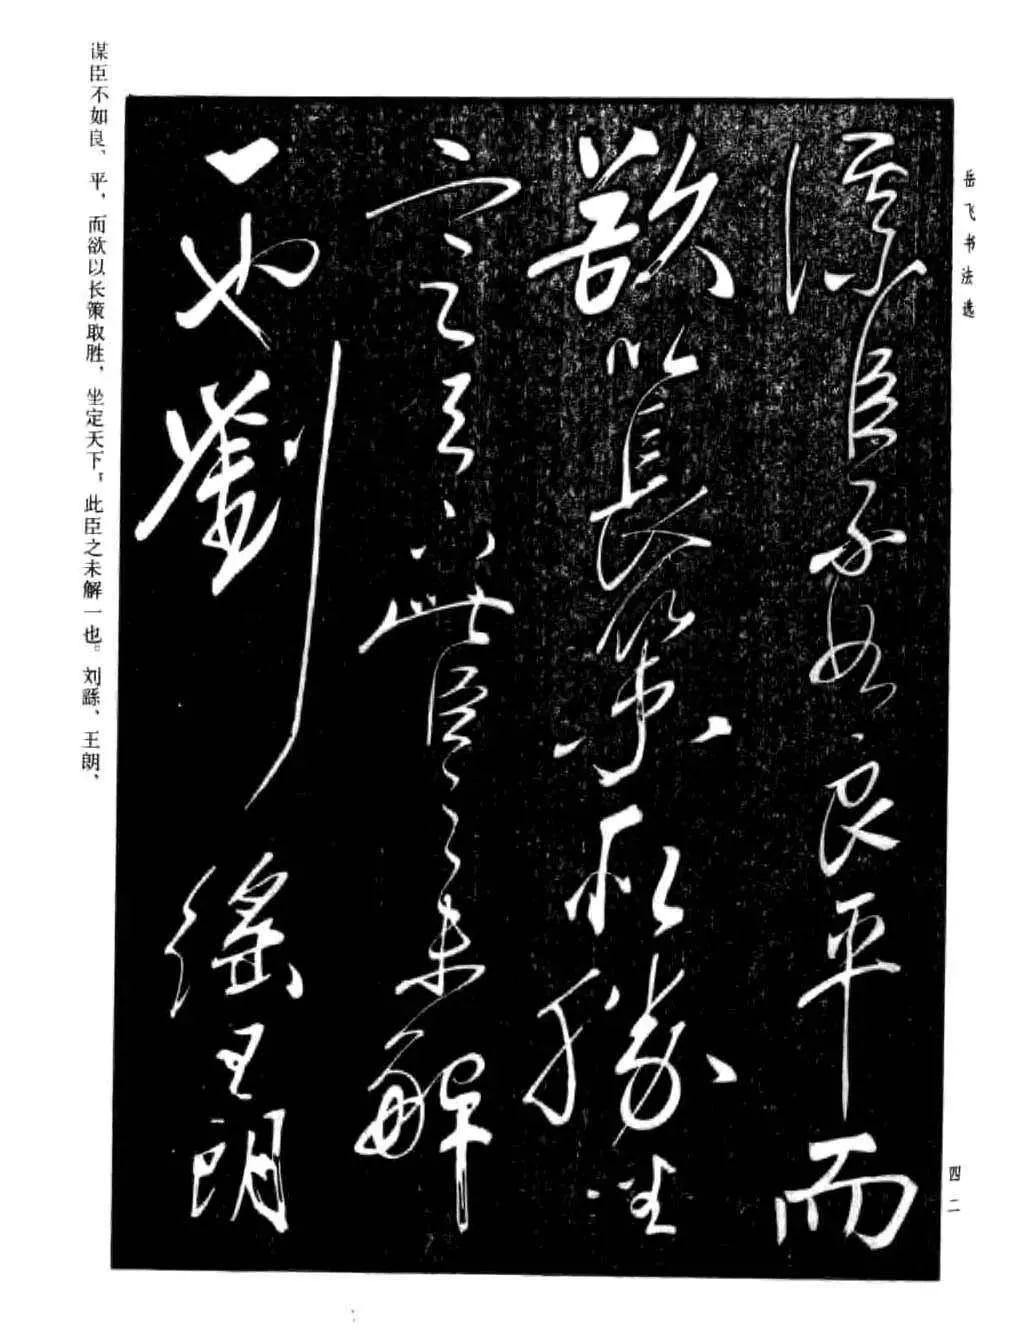 岳飞书法选
谋臣不如良平而
欲以長策取勝坐
定天下此臣之未解
一也劉繇王朗
谋臣不如良、平，而欲以长策取胜，坐定天下，此臣之未解一也。刘繇、王朗、
四二